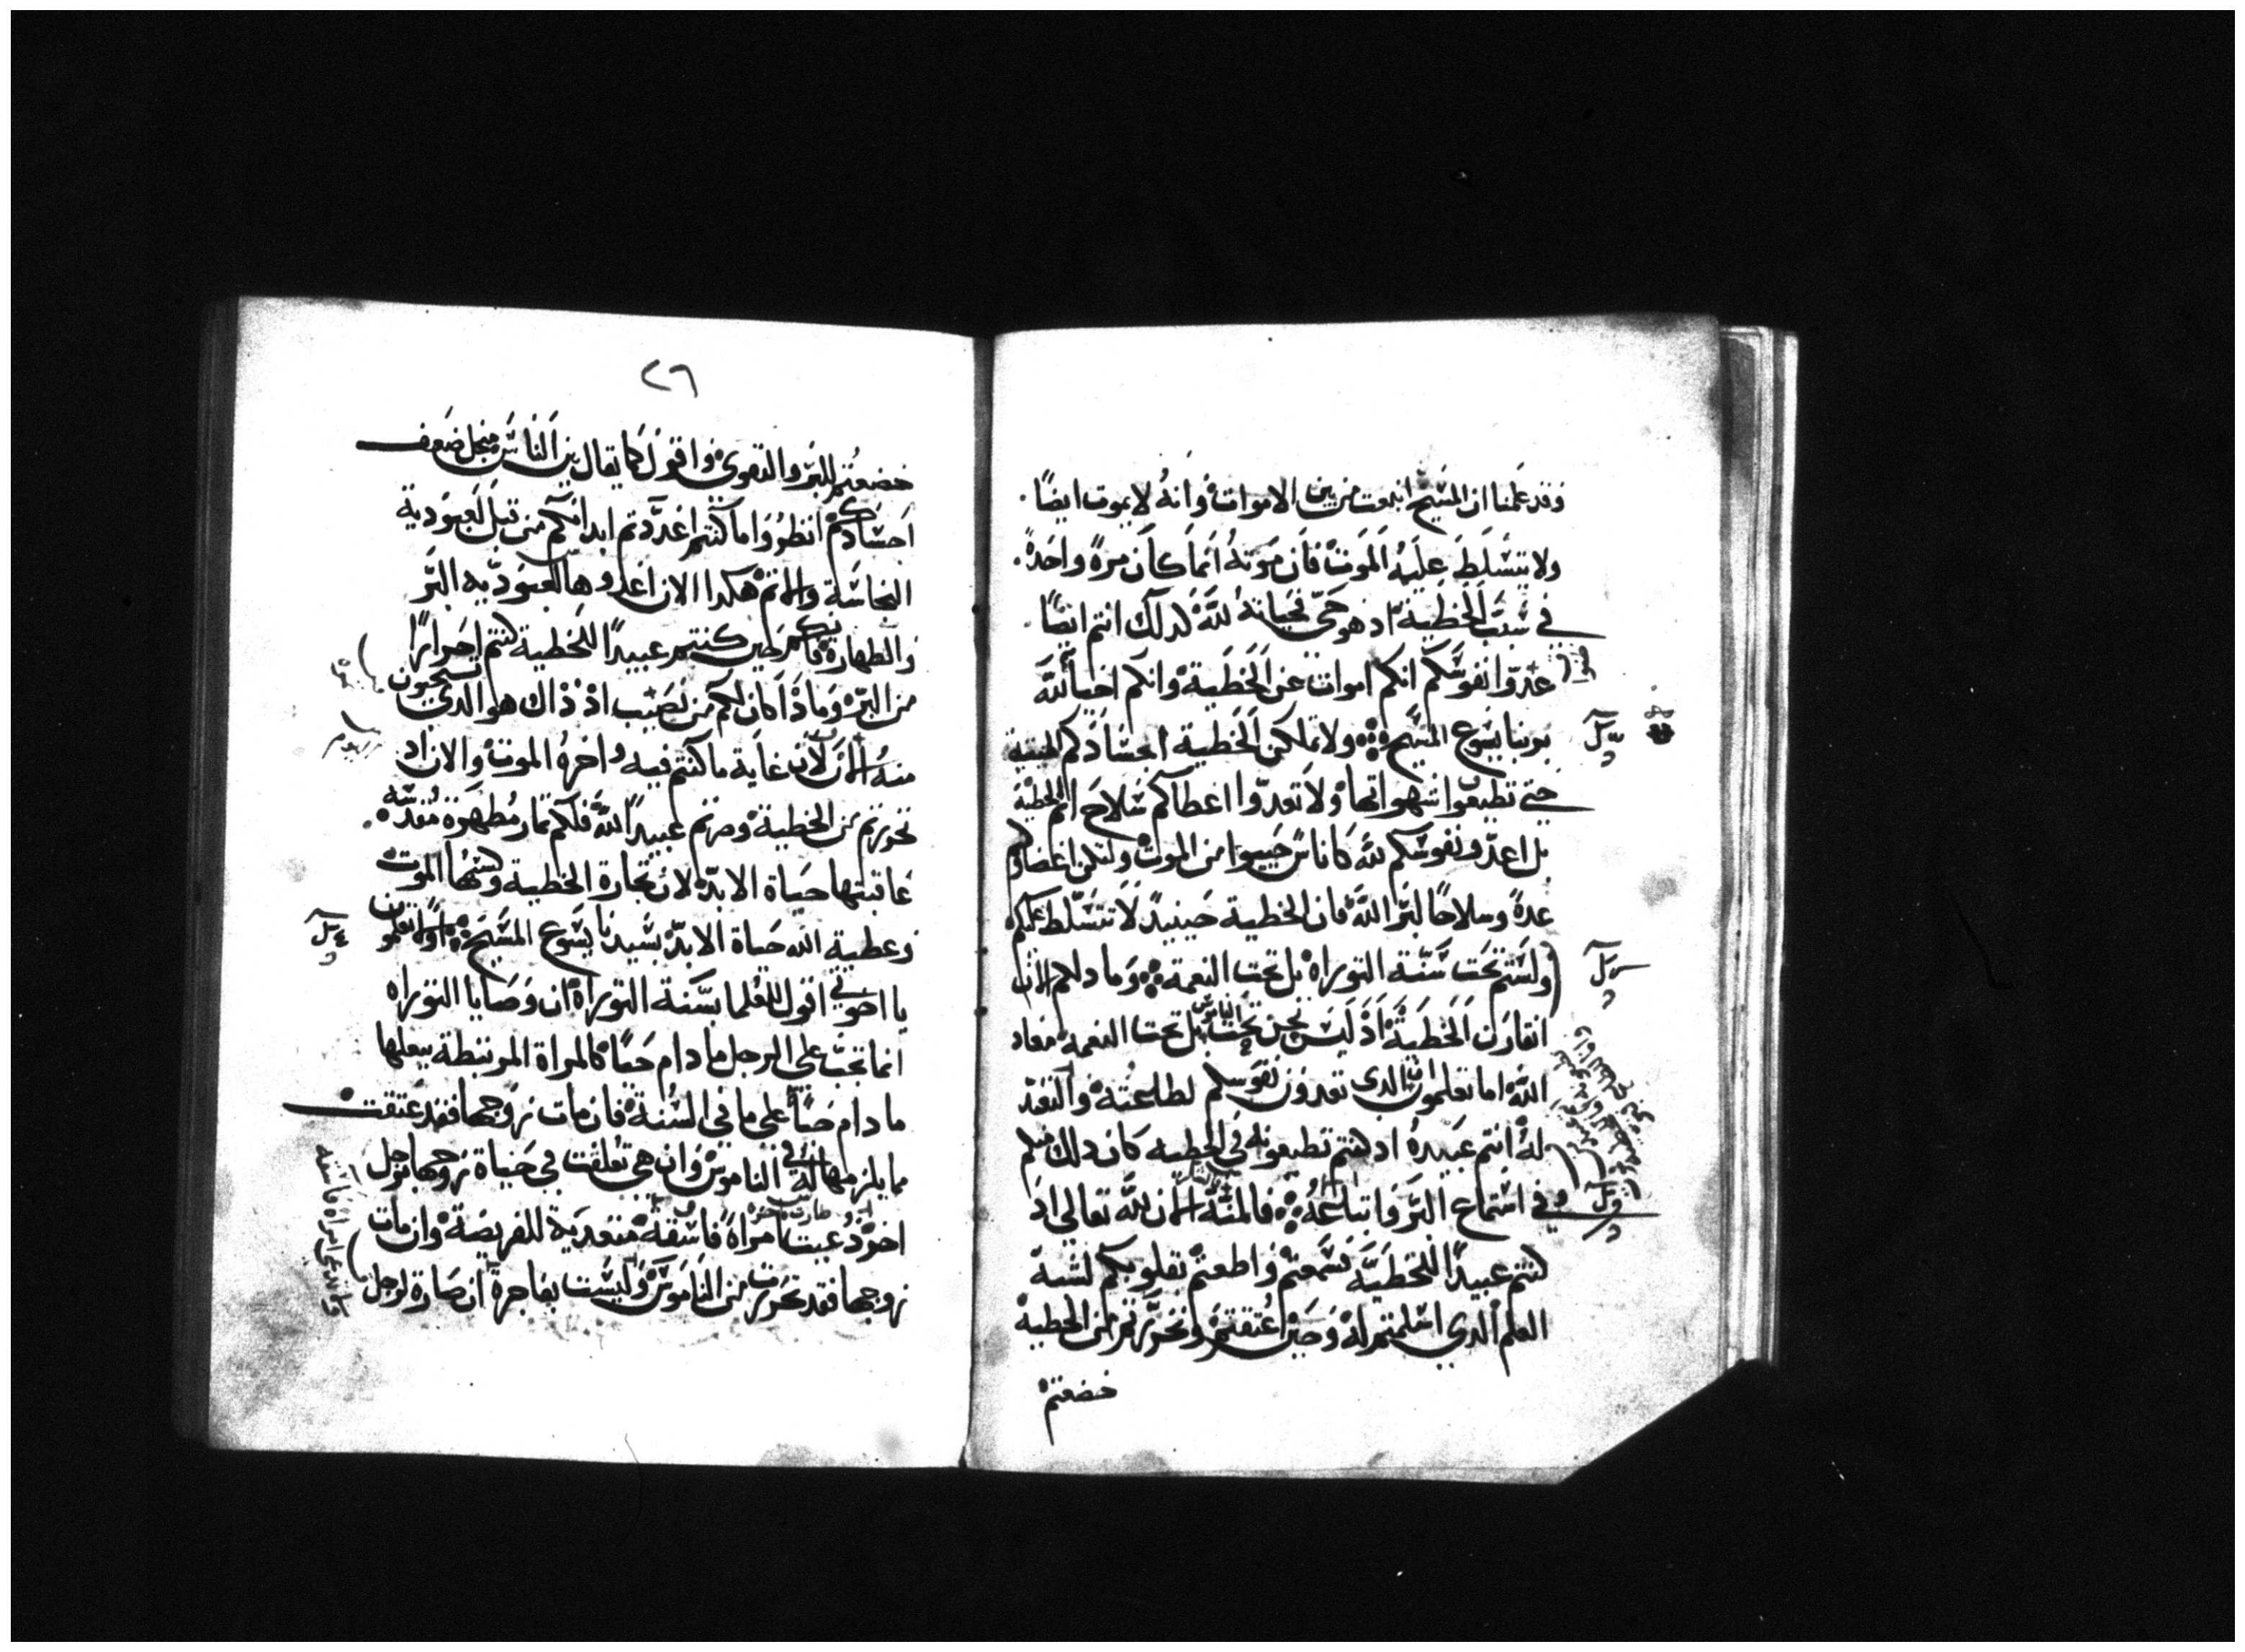 وقد علمنا ان المسيح انبعت من بين الاموات وانهُ لا يموت ايضًا
ولا يتسَلط عليهُ الموت فان موتهُ انما كان مرةً واحدةً
في سَبب الخطية اد هو حَيّ فحياتهُ للّه كدلك انتم ايضًا
عدّوا نفوسَكم انكم اموات عن الخطية وانكم احيا للّه
بربنا يسَوع المسَيح ولا تملكن الخطية اجسَادكم الميتة
حتي تطيعوا شهواتها ولا تعدّوا اعطاكم سَلاح اتم الخطية
بل اعدّو نفوسَكم للّه كاناسَ حَييوا من الموت ولتكن اعضاوكم
عدةً وسلاحًا لبرّ اللّه فان الخطية حينيدً لا تتسَلط عليكم
ولستم تحت سَنّة التوراه بل تحت النعمة وما دلكم الان
اتقارن الخطية اد ليسَ نحن تحت الناموس بل تحت النعمة معاد
اللّه اما تعلمون ان الدي تعدون نفوسكم لطاعته والتعبّد
لهُ انتم عَبيدهُ اد كنتم تطيعونه في الخطيه كان دلك منكم
وفي استماع البرّ واتباعهُ فالمنّة للّه تعالي اد
كنتم عبيدًا للخطيّة فسَمعتم واطعتم بقلوبكم لشبه
العلم الدي اسَلمتم له وحين اُعتقتم وتحرّرتم من الخطية
خضعتم
٢٦
خضعتُم للبرّ والتقوي واقول كما يقال بين الناسَ من اجل ضعف
اجسَادكم انظرُوا ما كنتم اعدَدتم ابدانكم من قبل لعبودية
النجاسَة والاتم هكدا الان اعدوها لعبوديّه البرّ
والطهارة فانكم حين كنتم عبيدًا للخطية كنتم احرارًا
من البرّ وماذا كان لكم من نصيب اذ ذاك هو الدي تستحيون
منهُ الان لان غاية ما كنتم فيه واخرهُ الموت والان اد
تحررتم من الخطية وصرتم عبيدًا للّه فلكم تمار مُطهرة مُقدسَه
عاقبتها حياة الابد لان تجارة الخطية وكسَبُها الموت
وعطية اللّه حياة الابد بسَيدنا يسَوع المسَيح اولا تعلمون
يا اخوتي اقول للعُلما بسَنة التوراة ان وَصَايا التوراه
انما تجبُ علي الرجل ما دام حَيًا كالمراة المرتبطة ببعلها
ما دام حَيًا علي ما في السَنة فان مات زوجها فقد عتقت
مما يلزمها في الناموسَ وان هي تعلقت في حياة زوجها برجل
اخر دُعيت امراة فاسَقة متعدية للفريضة وان مات
زوجها فقد تحررت من الناموسَ وليسَت بفاجرة ان صَارة لرجل